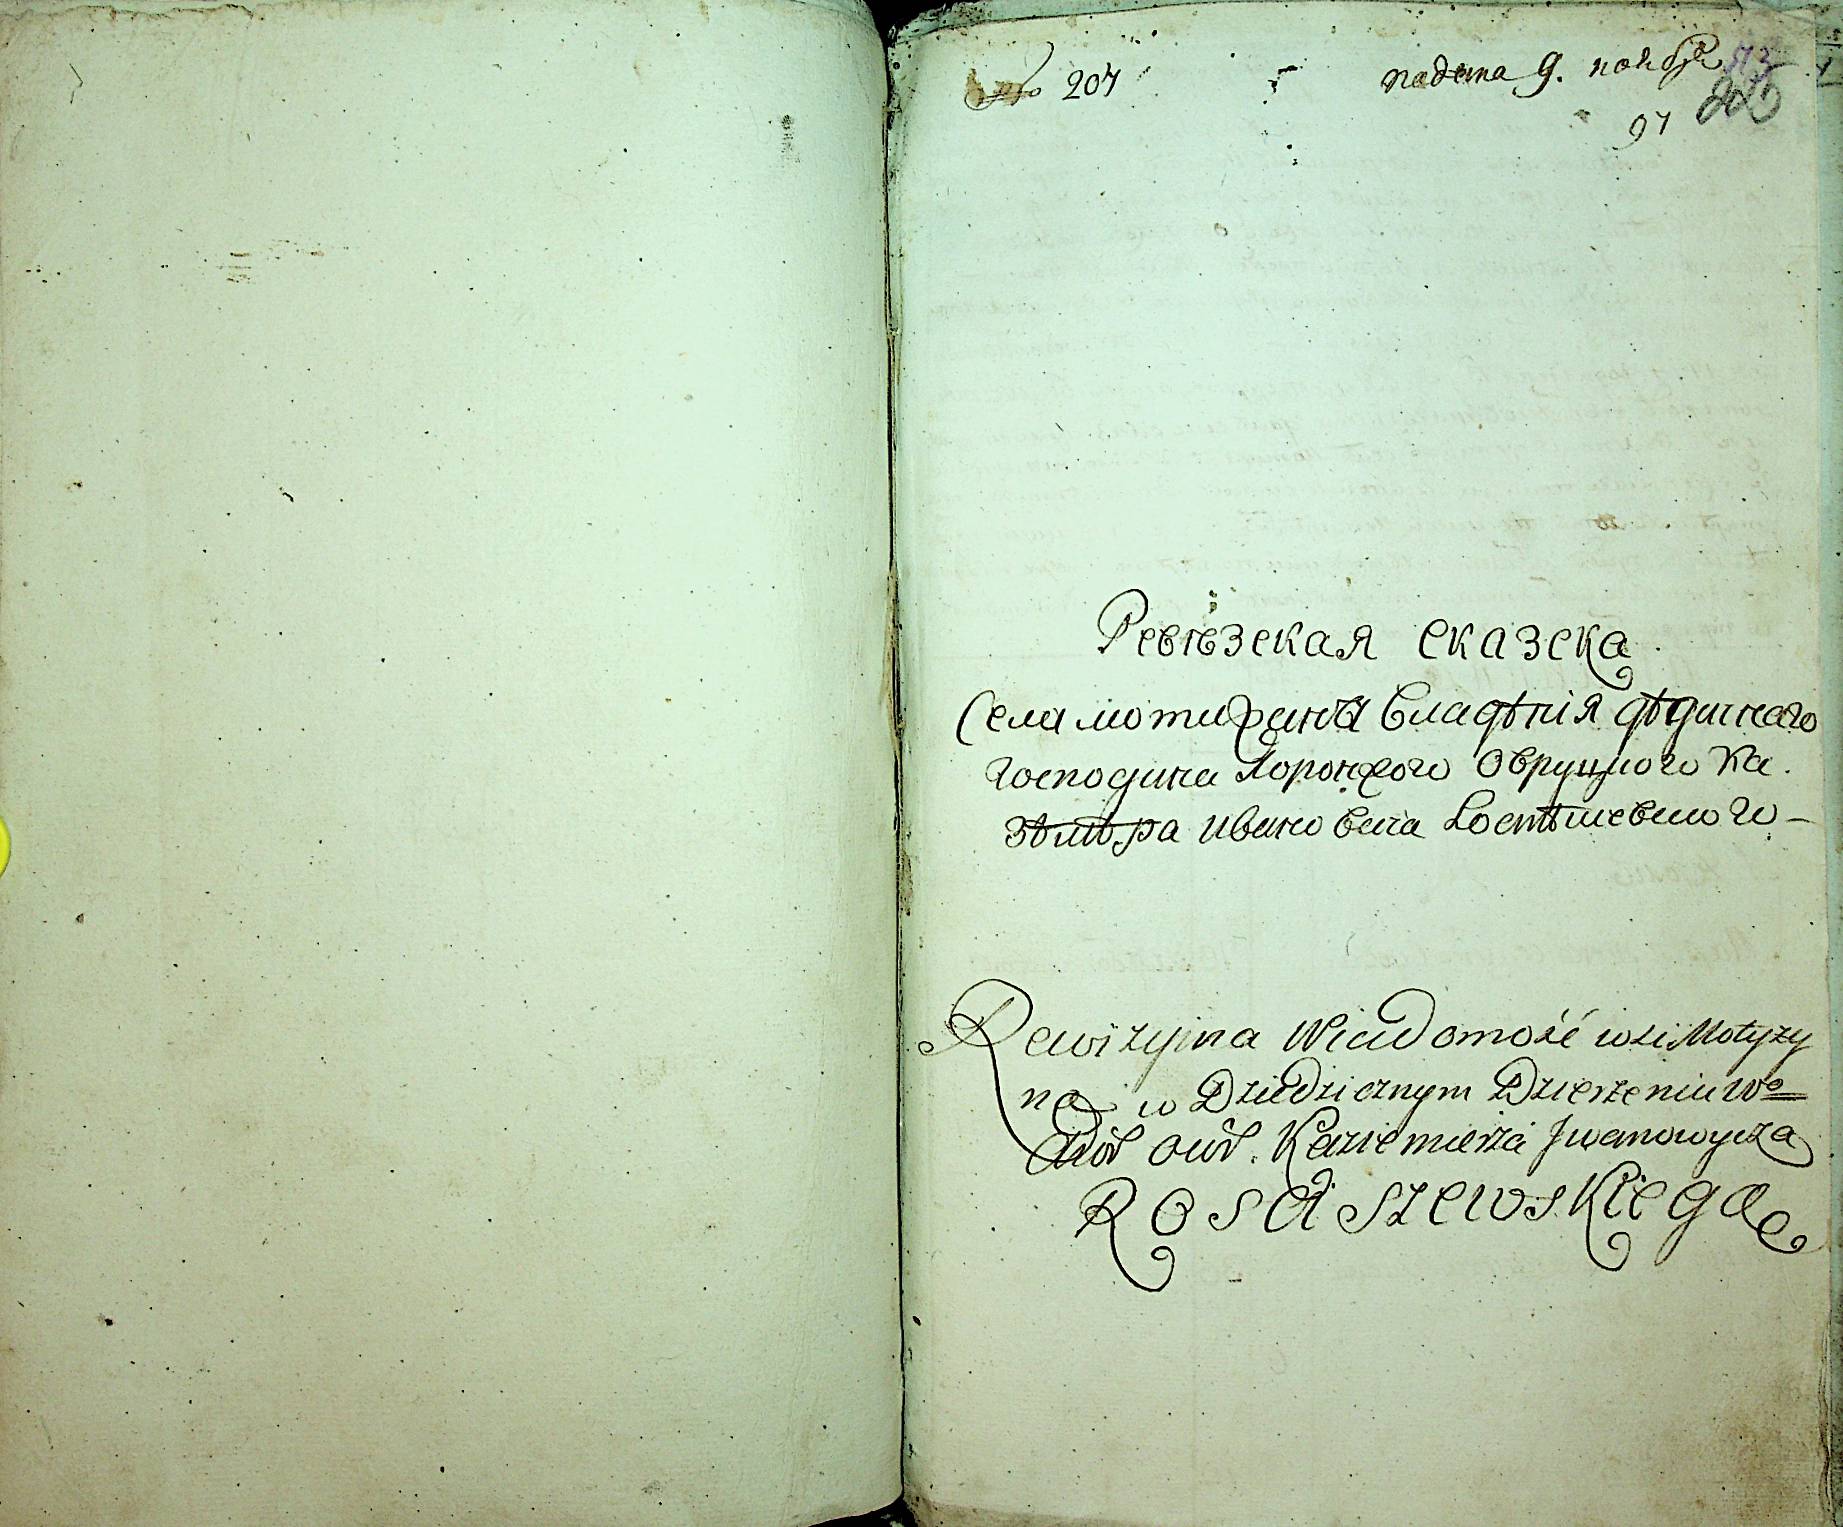 207 подана 9. ноября
97
Ревѣзская сказска.
Села мотижина владѣнія дѣдичнаго
господина Хоронжого Овруцкого Ка.
зѣмѣра ивановича Росѣтшевского –
Rewizyina Wiadomość wsi Motyży
na w Dziedzicznym Dzierżeniu W°
Kazimierza Jwanowycza
Rosciszewskiego